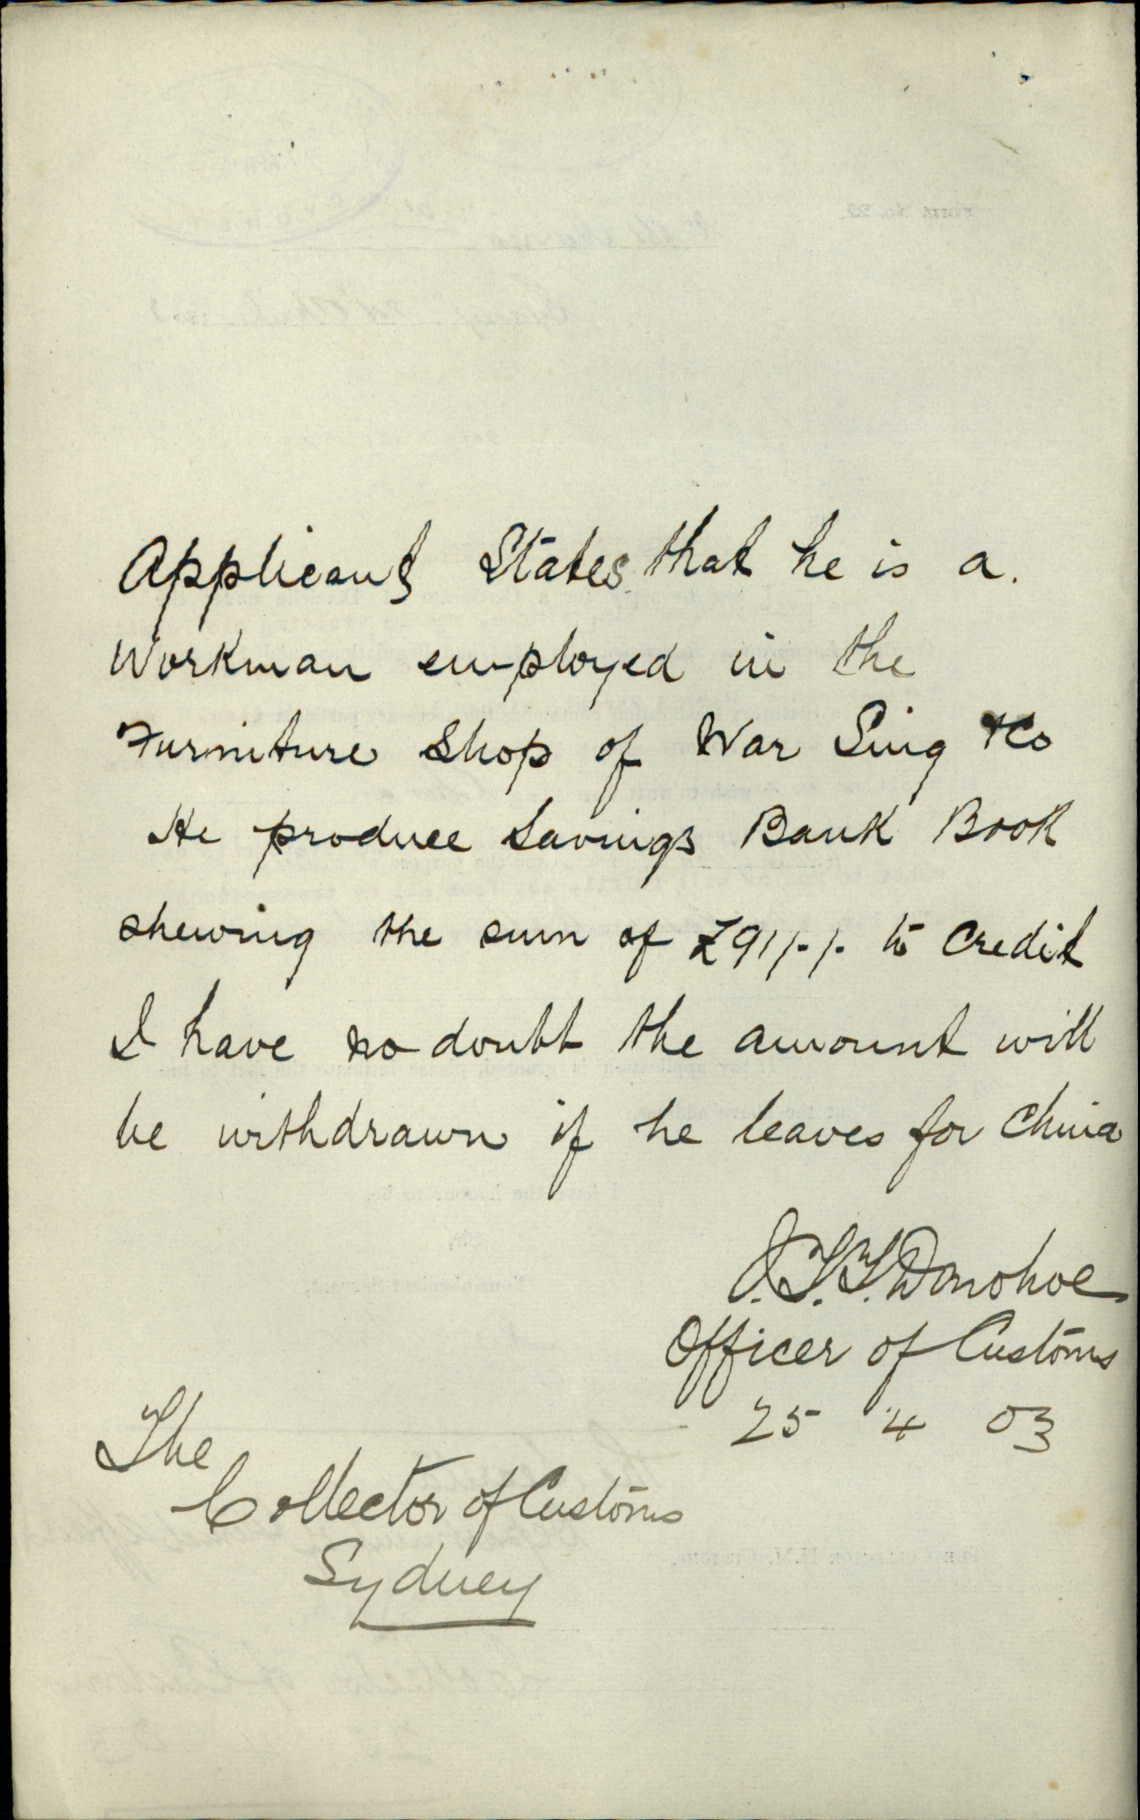 Applicant States that he is a.
Workman employed in the
Furniture Shop of War Sing & Co
He produce Savings Bank Book
shewing the sum of £91/-/- to Credit
I have no doubt the amount will
be withdrawn if he leaves for China
J.T.T. Donohoe
Officer of Customs
25 4 03
The
Collector of Customs
Sydney